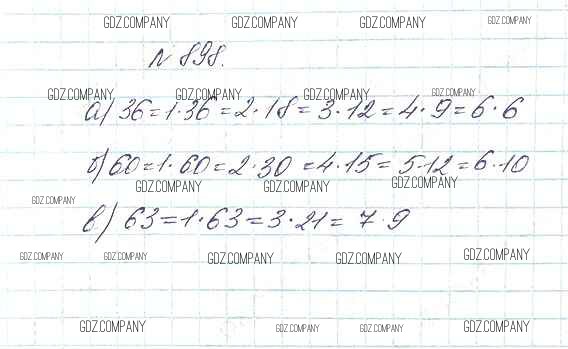 GDZ.COMPANY GDZ.COMPANY GDZ.COMPANY GDZ.COMPANY
№ 898.
GDZ.COMPANY GDZ.COMPANY GDZ.COMPANY GDZ.COMPANY
а) 36=1·36=2·18=3·12=4·9=6·6
б) 60=1·60=2·30=4·15=5·12=6·10
GDZ.COMPANY GDZ.COMPANY GDZ.COMPANY
GDZ.COMPANY
в) 63=1·63=3·21=7·9
GDZ.COMPANY GDZ.COMPANY GDZ.COMPANY GDZ.COMPANY GDZ.COMPANY
GDZ.COMPANY GDZ.COMPANY GDZ.COMPANY GDZ.COMPANY